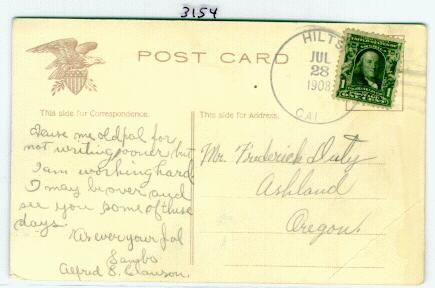 3154
POST CARD
HILTS
JUL
28
1908
CAL
This side for Correspondence.
This side for Address.
me old pal for
not writing sooner but
I am working hard
I may be over and
see you some of these
days.
As ever your Pal
Sambo
Alfred S. Clawson.
Mr. Frederick Duty
Ashland
Oregon.